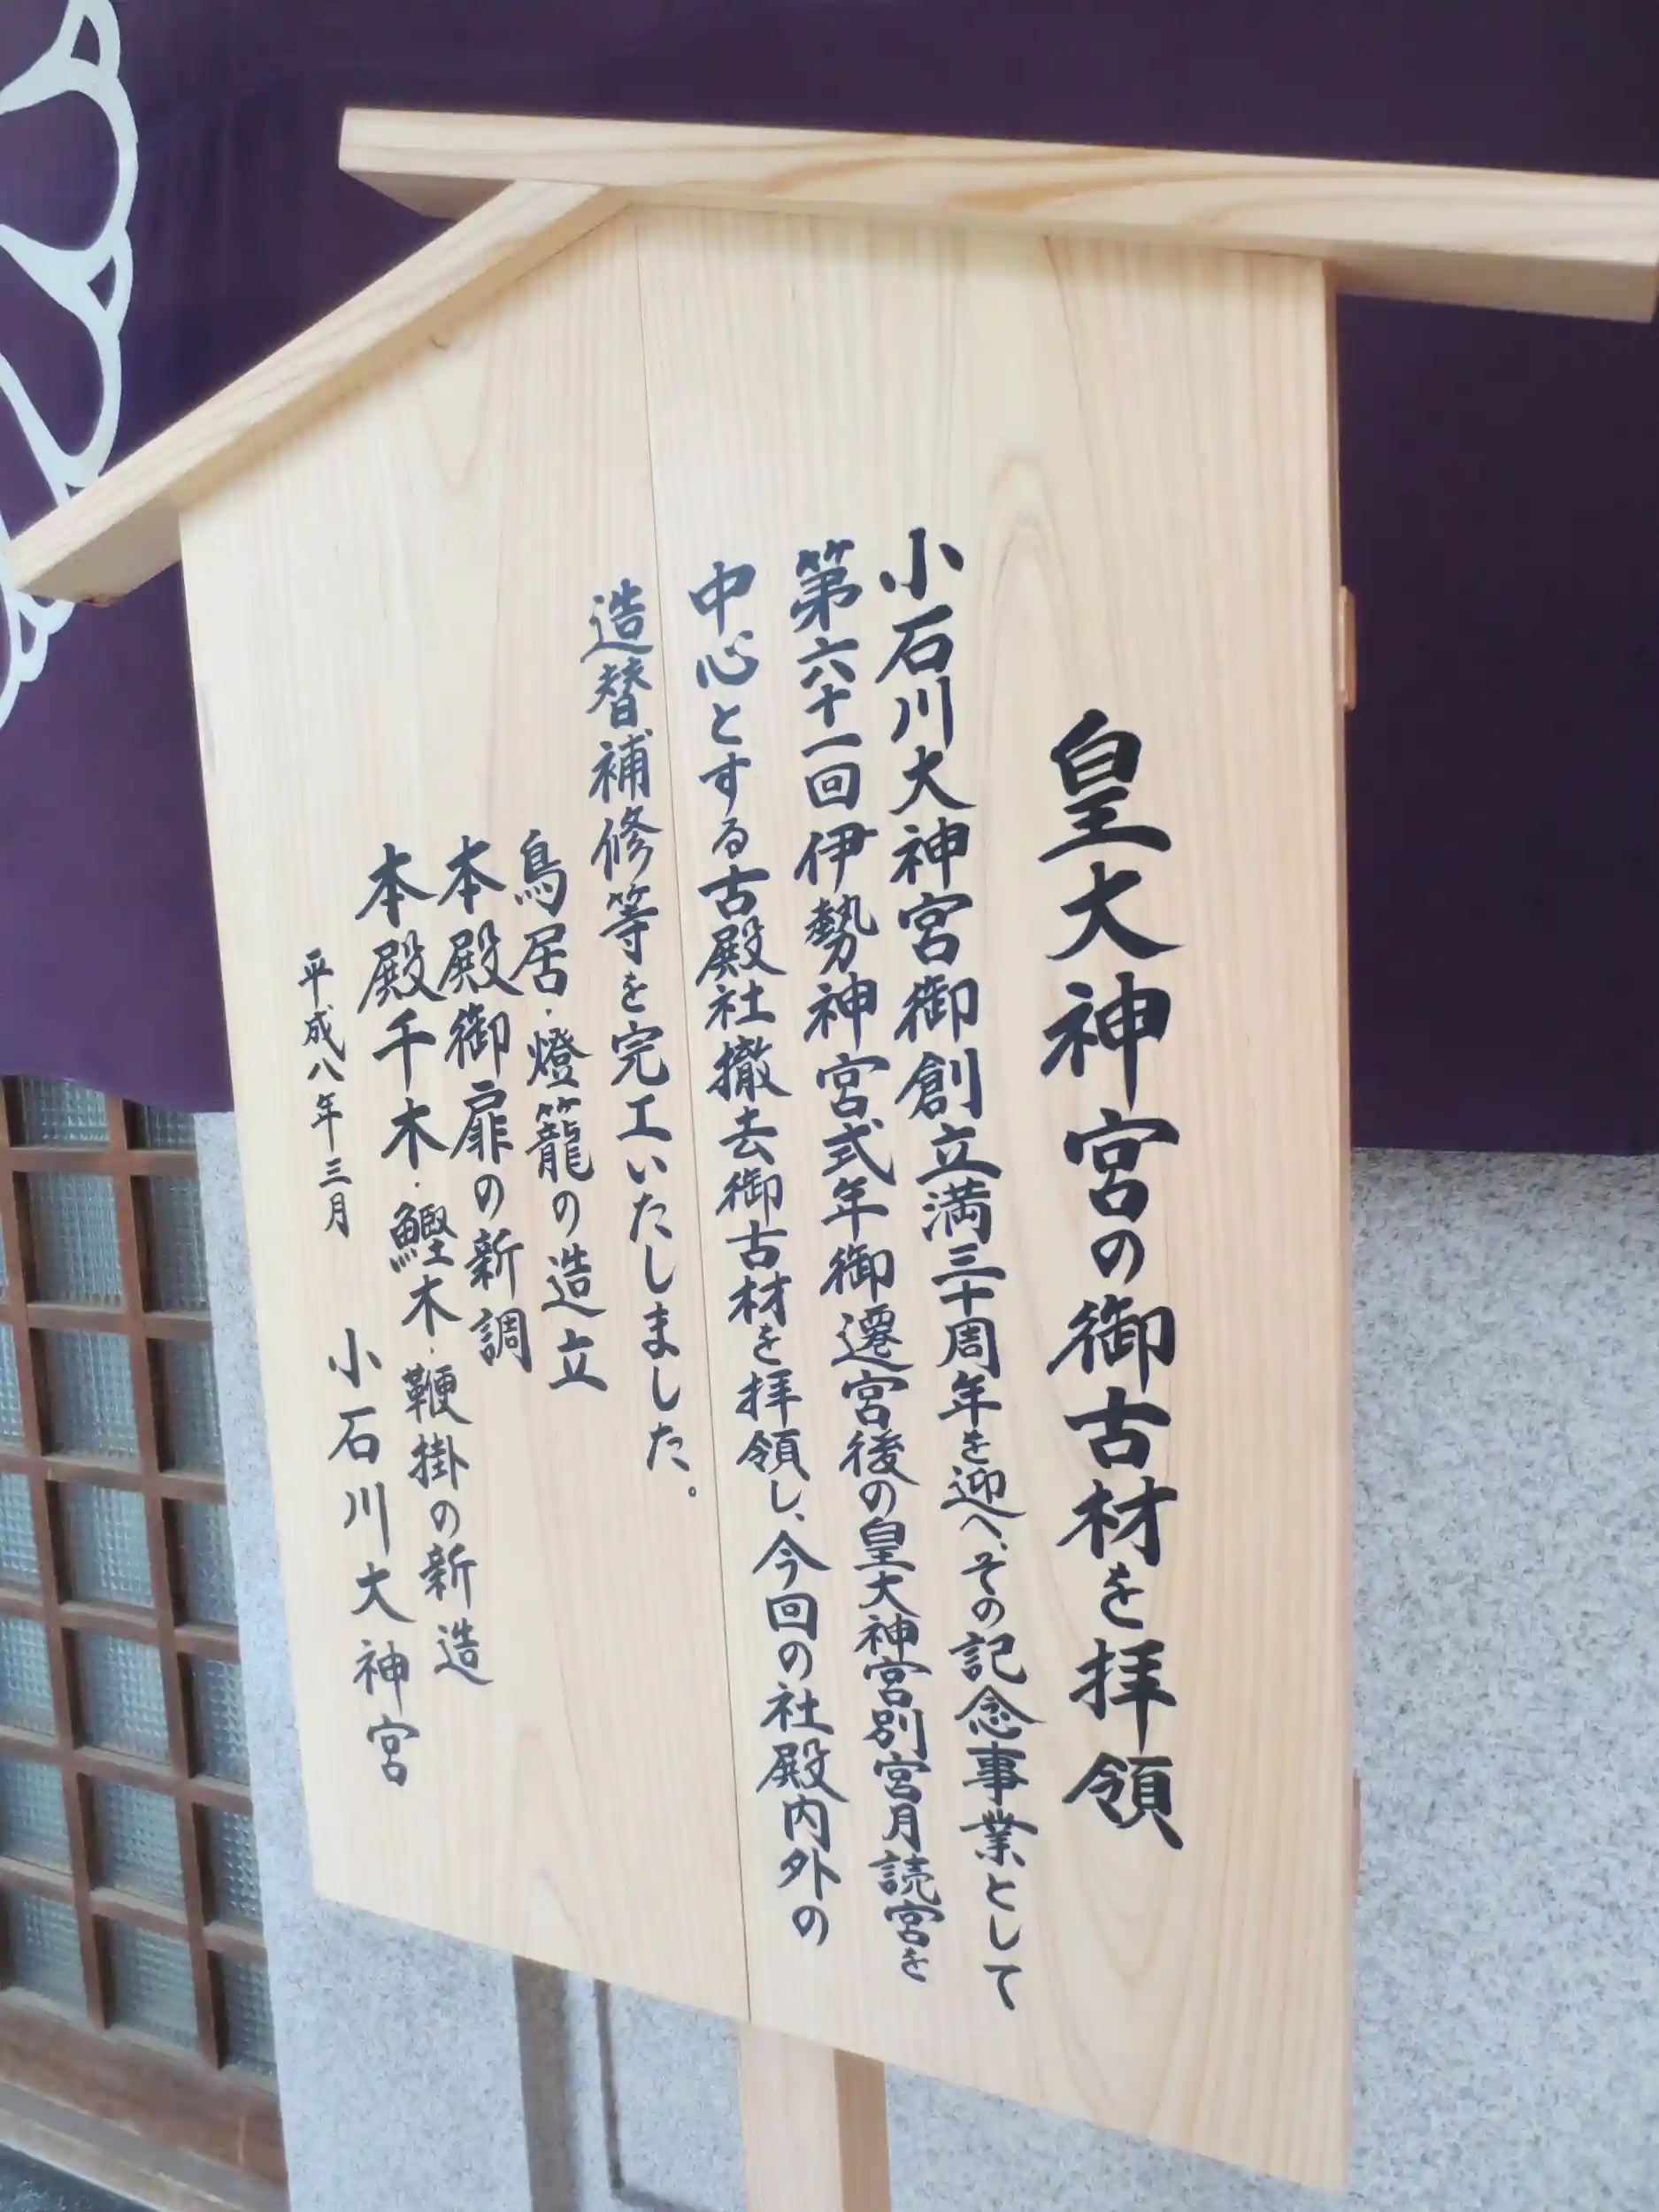 皇大神宮の御古材を拝領
小石川大神宮御創立満三十周年を迎へ、その記念事業として
第六十一回伊勢神宮式年御遷宮後の皇大神宮別宮月読宮を
中心とする古殿社撤去御古材を拝領し、今回の社殿内外の
造替補修等を完工いたしました。
鳥居・燈籠の造立
本殿御扉の新調
本殿千木・鰹木・鞭掛の新造
平成八年三月
小石川大神宮